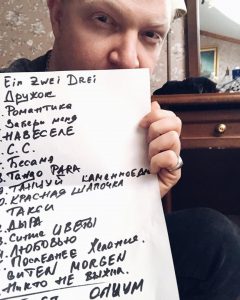 Ein Zwei Drei
Дружок
Романтика
Забери меня
НАВЕСЕЛЕ
С.С.
Бесаме
Tango PARA
ТАНЦУЙ
КРАСНАЯ ШАПОЧКА
ТАКСИ
ДЫРА
Синие ЦВЕТЫ
ЛЮБОВЬЮ
Последнее Желание.
GUTEN MORGEN
Никто не выжил.
ОПИУМ